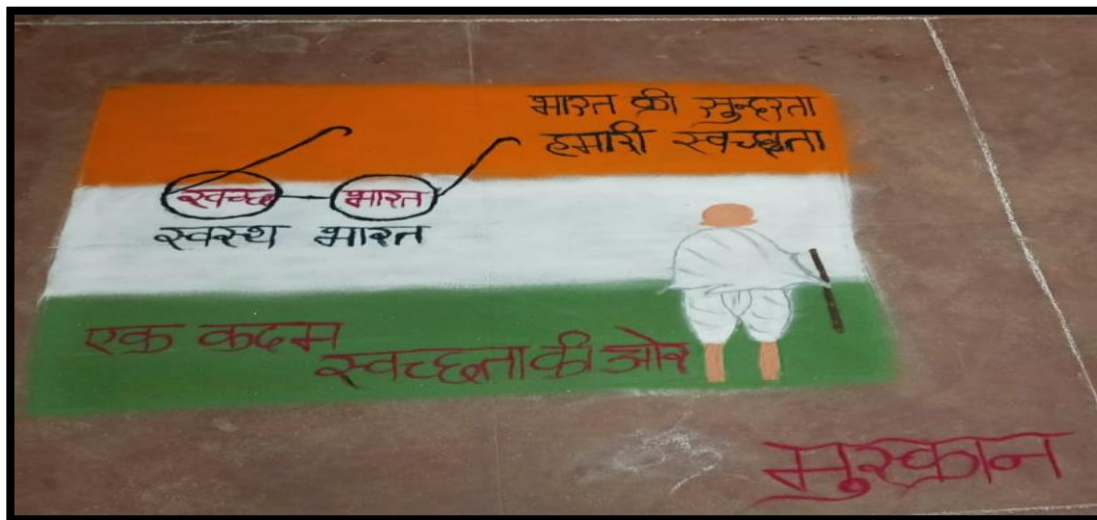 भारत की सुन्दरता
हमारी स्वच्छता
स्वच्छ भारत
स्वस्थ भारत
एक कदम
स्वच्छता की ओर
मुस्कान